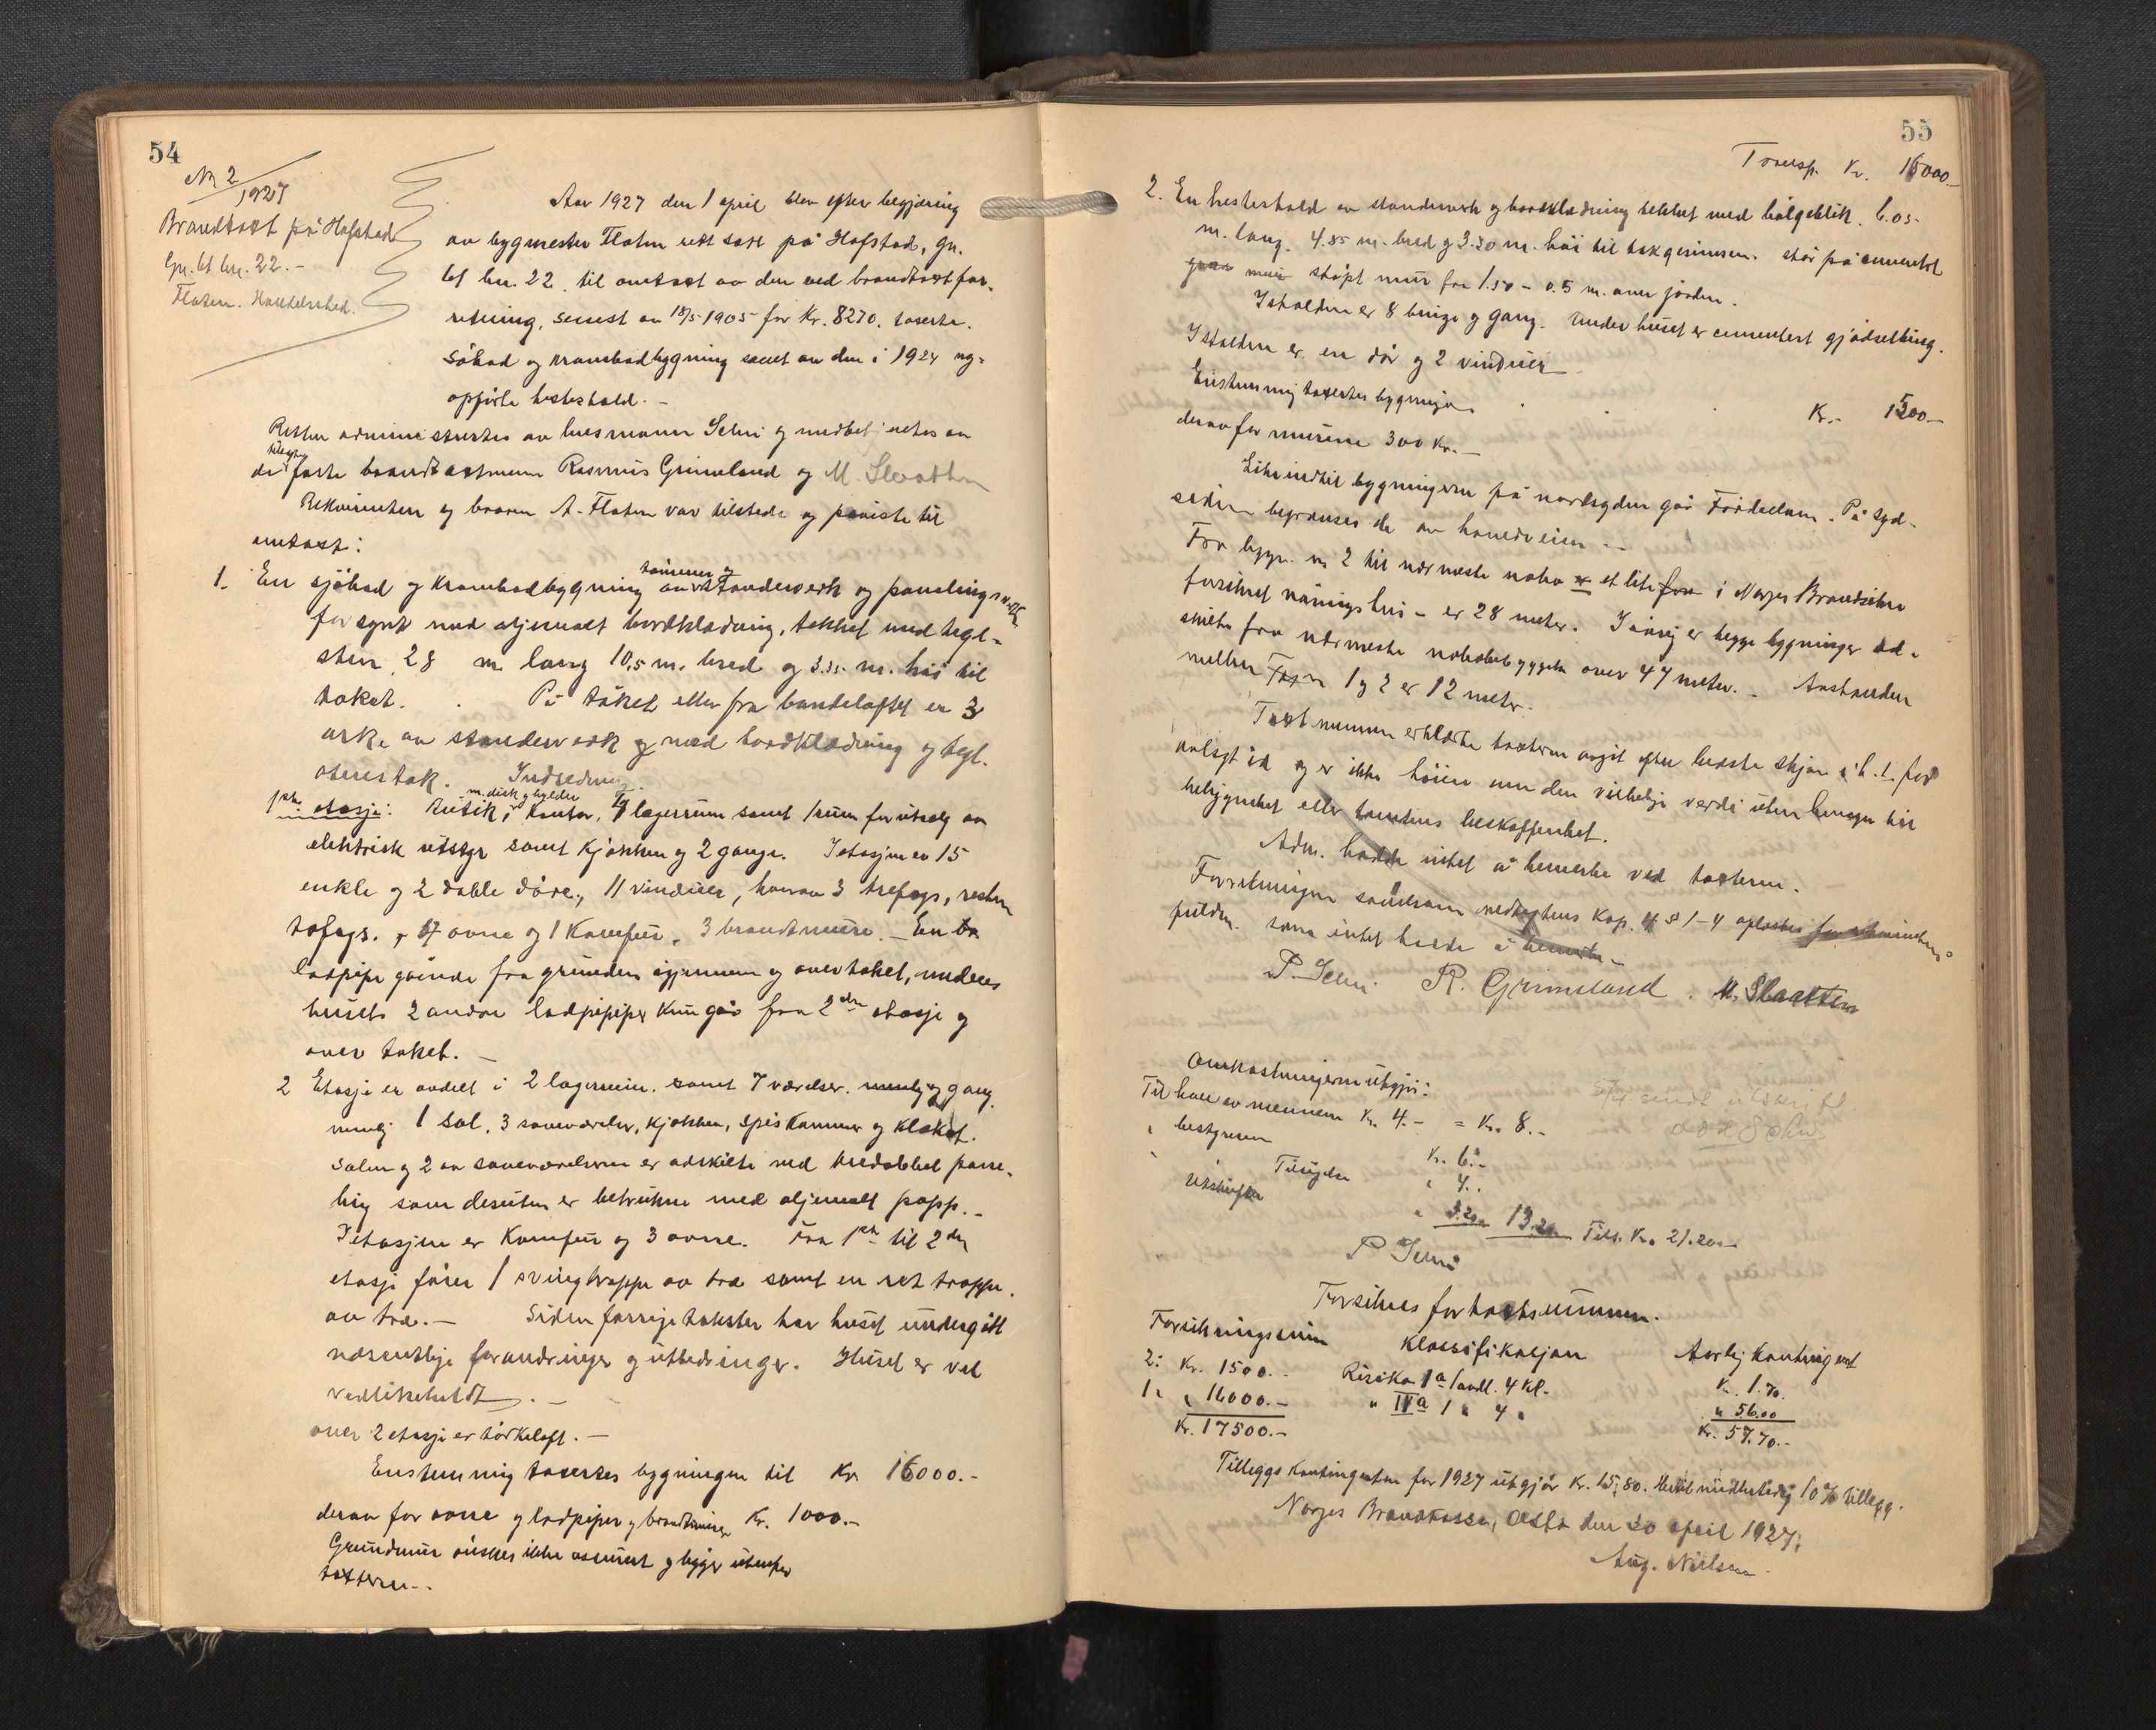 54
No 2
1927
Brandtakst på Hofstad
Gn. 61 bn. 22. -
Floten. Handelssted.
Aar 1927 den 1 april blev efter begjæring
av bygmester Floten rett satt på Hofstad, gn.
61 bn. 22, til omtaxt av den ved brandtaxtfor-
retning, senest av 18/5 1905 for Kr. 8270, taserte
Söbod og krambodbygning samt av den i 1924 ny-
opförte hestestald. -
Retten administrertes av lensmann Selni og medbetjentes av
de faste brandtaxtmenn Rasmus Grimeland og M. Slaatten
Rekvirenten og broren A. Floten var tilstede og påviste til
omtaxt:
1. En sjöbod og krambodbygning av tömmer og standerverk og panelingsverk
forsynt med oljemalt bordklædning, tekket med tegl-
sten, 28 m. lang 10,5 m. bred og 3.35 m. höi til
taket. På taket eller fra bandeloftet er 3
arke av standerverk og med bordklædning og tegl-
stenstak. Indredning.
1ste etasje: Butik m. disk og hylder, Kontor, lagerrum samt 1 rum for utsalg av
elektrisk utstyr samt Kjökken og 2 gange. I etasjen er 15
enkle og 2 doble döre, 11 vinduer, hvorav 3 trefags, resten
tofags, 7 ovne og 1 Komfur. 3 brandmure. - En
lodpipe gående fra grunden igjennem og over taket, medens
husets 2 andre lodpiper kun går fra 2den etasje og
over taket. -
2 Etasje er avdelt i 2 lagerrum, samt 7 værelser. og gang.
nemlig 1 Sal, 3 soveværelser, Kjökken, Spiskammer og Kloset.
Salen og 2 av soveværelserne er adskilte med
som desuten er betrukne med oljemalt papp. -
I etasjen er Komfur og 3 ovne. Fra 1ste til 2den
etasje förer 1 svingtrappe av træ samt en ret trappe
av træ. - Siden forrige takster har huset undergått
væsentlige forandringer og utbedringer. Huset er vel
vedlikeholdt. -
over 2 etasje er törkeloft. -
Enstemmig taxertes bygningen til Kr 16000.-
derav for ovne og lodpiper og brandmurer Kr. 1000.-
Grundmur önskes ikke assurert og ligger utenfor
taxterne. -
55
Transp. Kr. 16000-
2. En hestestald av standerverk og bordklædning tekket med bölgeblik. 6.05-
m. lang. 4.85 m. bred og 3.30 m. höi til takgesimsen. står på cementet
stöpt mur fra 1.50 - 0.5 m. over jorden.
I stalden er 8 binge og gang. Under huset er cementert gjödselbing.
I stalden er en dör og 2 vinduer
Enstemmig taxertes bygningen Kr.- 1500-
derav for murene 300 Kr. -
Like indtil bygningerne på nordsyden går Fördeelven. På syd-
siden begrænses de av hovedveien. -
Fra bygn. nr 2 til nærmeste nabo et lite i Norges Brandkasse
forsikret våningshus - er 28 meter. Iövrig er begge bygninger ad-
skilte fra nærmeste nabobebyggelse over 47 meter. - Avstanden
mellem 1 og 2 er 12 meter.
Taxtmennene erklærte taxterne avgit efter bedste skjön i h. t. før
avlagt ed og er ikke höiere enn den virkelige verdi uten hensyn til
beliggenhet eller tomtens beskaffenhet.
Adm. hadde intet å bemerke ved taxterne.
Forretningen sådan som nedtegnes Kap. 4 § 1-4 oplæstes for rekvirenten
som intet hadde å bemerke -
P. Selni R. Grimeland. M. Slaatten
Omkostningerne utgjör:
Til hver av mennene Kr. 4.- = Kr. 8.-
" bestyreren Kr. 6.-
Tilsigelse " 4..
" Utskrifter " 3.20 13.20 Tils. Kr. 21.20-
P Selni
Forsikres for taxtsummen.
Forsikringssum Klassifikasjon Aarlig Kontingent
2: Kr. 1500.- Risiko 1a 1 avdl. 4 Kl. Kr. 1.70.
1" " 16000.- " IVa 1 " 4 " " 56.00
Kr. 17500.- Kr. 57.70.-
Tilleggs Kontingenten for 1927 utgjör Kr. 15.80. Hertil midlertidig 10% tillegg.
Norges Brandkasse, Oslo den 20 april 1927.
Aug. Nielsen.